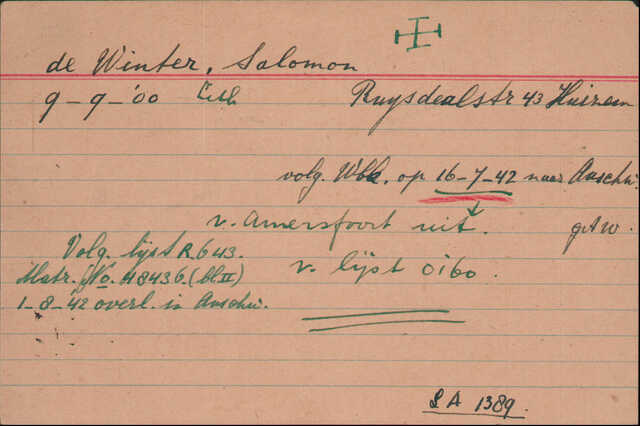 de Winter, Salomon
9-9-'00 Ruysdealstr 43 Huizen
volg. Wbk. op 16-7-42 naar Auschw.
v. Amersfoort uit. gAw.
Volg. lijst R.643.
Matr. No. 48436. (bl II)
v. lijst 0160.
1-8-42 overl. in Auschw.
SA 1389.